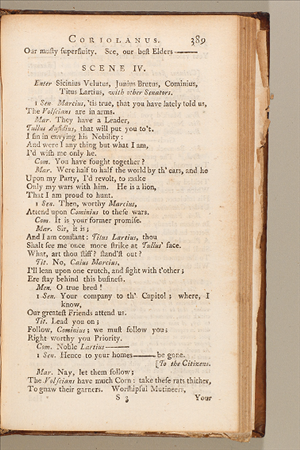 CORIOLANUS. 389
Our musty superfluity. See, our best Elders———
SCENE IV.
Enter Sicinius Velutus, Junius Brutus, Cominius,
Titus Lartius, with other Senators.
1 Sen Marcius, 'tis true, that you have lately told us,
The Volscians are in arms.
Mar. They have a Leader,
Tullus Aufidius, that will put you to't.
I sin in envying his Nobility:
And were I any thing but what I am,
I'd wish me only he.
Com. You have fought together?
Mar. Were half to half the world by th' ears, and he
Upon my Party, I'd revolt, to make
Only my wars with him. He is a lion,
That I am proud to hunt.
1 Sen. Then, worthy Marcius,
Attend upon Cominius to these wars.
Com. It is your former promise.
Mar. Sir, it is;
And I am constant: Titus Lartius, thou
Shalt see me once more strike at Tullus' face.
What, art thou stiff? stand'st out?
Tit. No, Caius Marcius,
I'll lean upon one crutch, and fight with t'other;
Ere stay behind this business.
Men. O true bred!
1 Sen. Your company to th' Capitol; where, I
know,
Our greatest Friends attend us.
Tit. Lead you on;
Follow, Cominius; we must follow you;
Right worthy you Priority.
Com. Noble Lartius———
1 Sen. Hence to your homes———be gone.
[To the Citizens.
Mar. Nay, let them follow;
The Volscians have much Corn: take these rats thither,
To gnaw their garners. Worshipful Mutineers,
S 3 Your